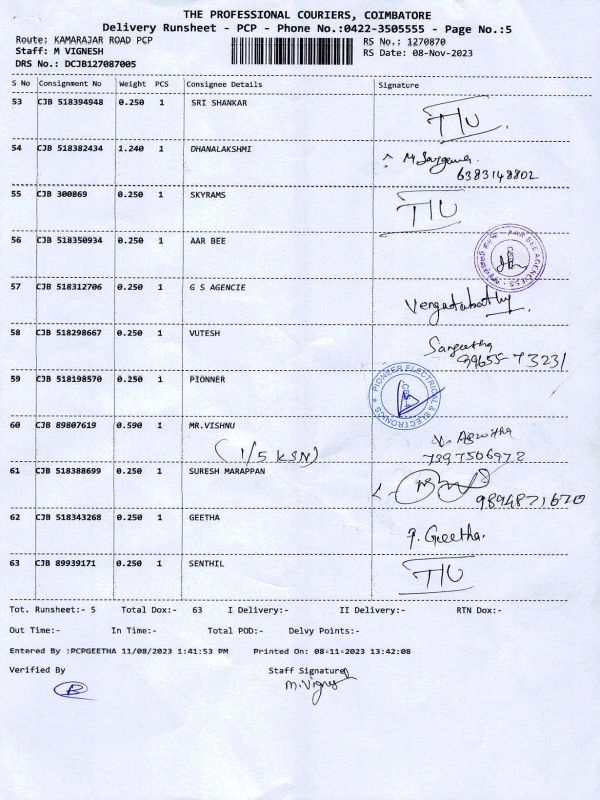 THE PROFESSIONAL COURIERS, COIMBATORE
Delivery Runsheet - PCP - Phone No.:0422-3505555 - Page No.:5
Route: KAMARAJAR ROAD PCP RS No.: 1270870
Staff: M VIGNESH RS Date: 08-Nov-2023
DRS No.: DCJB127087005
S No Consignment No Weight PCS Consignee Details Signature
53 CJB 518394948 0.250 1 SRI SHANKAR
54 CJB 518382434 1.240 1 DHANALAKSHMI
6383148802
55 CJB 300869 0.250 1 SKYRAMS
56 CJB 518350934 0.250 1 AAR BEE AAR BEE AGENCIESS
57 CJB 518312706 0.250 1 G S AGENCIE
58 CJB 518298667 0.250 1 VUTESH Sangeetha
99655 73231
59 CJB 518198570 0.250 1 PIONNER PIONEER ELECTRICAL & ELECTRONICS
60 CJB 89807619 0.590 1 MR.VISHNU
(1/5 KSN) 7397506972
61 CJB 518388699 0.250 1 SURESH MARAPPAN
9894871670
62 CJB 518343268 0.250 1 GEETHA Geetha.
63 CJB 89939171 0.250 1 SENTHIL
Tot. Runsheet:- 5 Total Dox:- 63 I Delivery:- II Delivery:- RTN Dox:-
Out Time:- In Time:- Total POD:- Delvy Points:-
Entered By :PCPGEETHA 11/08/2023 1:41:53 PM Printed On: 08-11-2023 13:42:08
Verified By Staff Signature
M.Vignesh